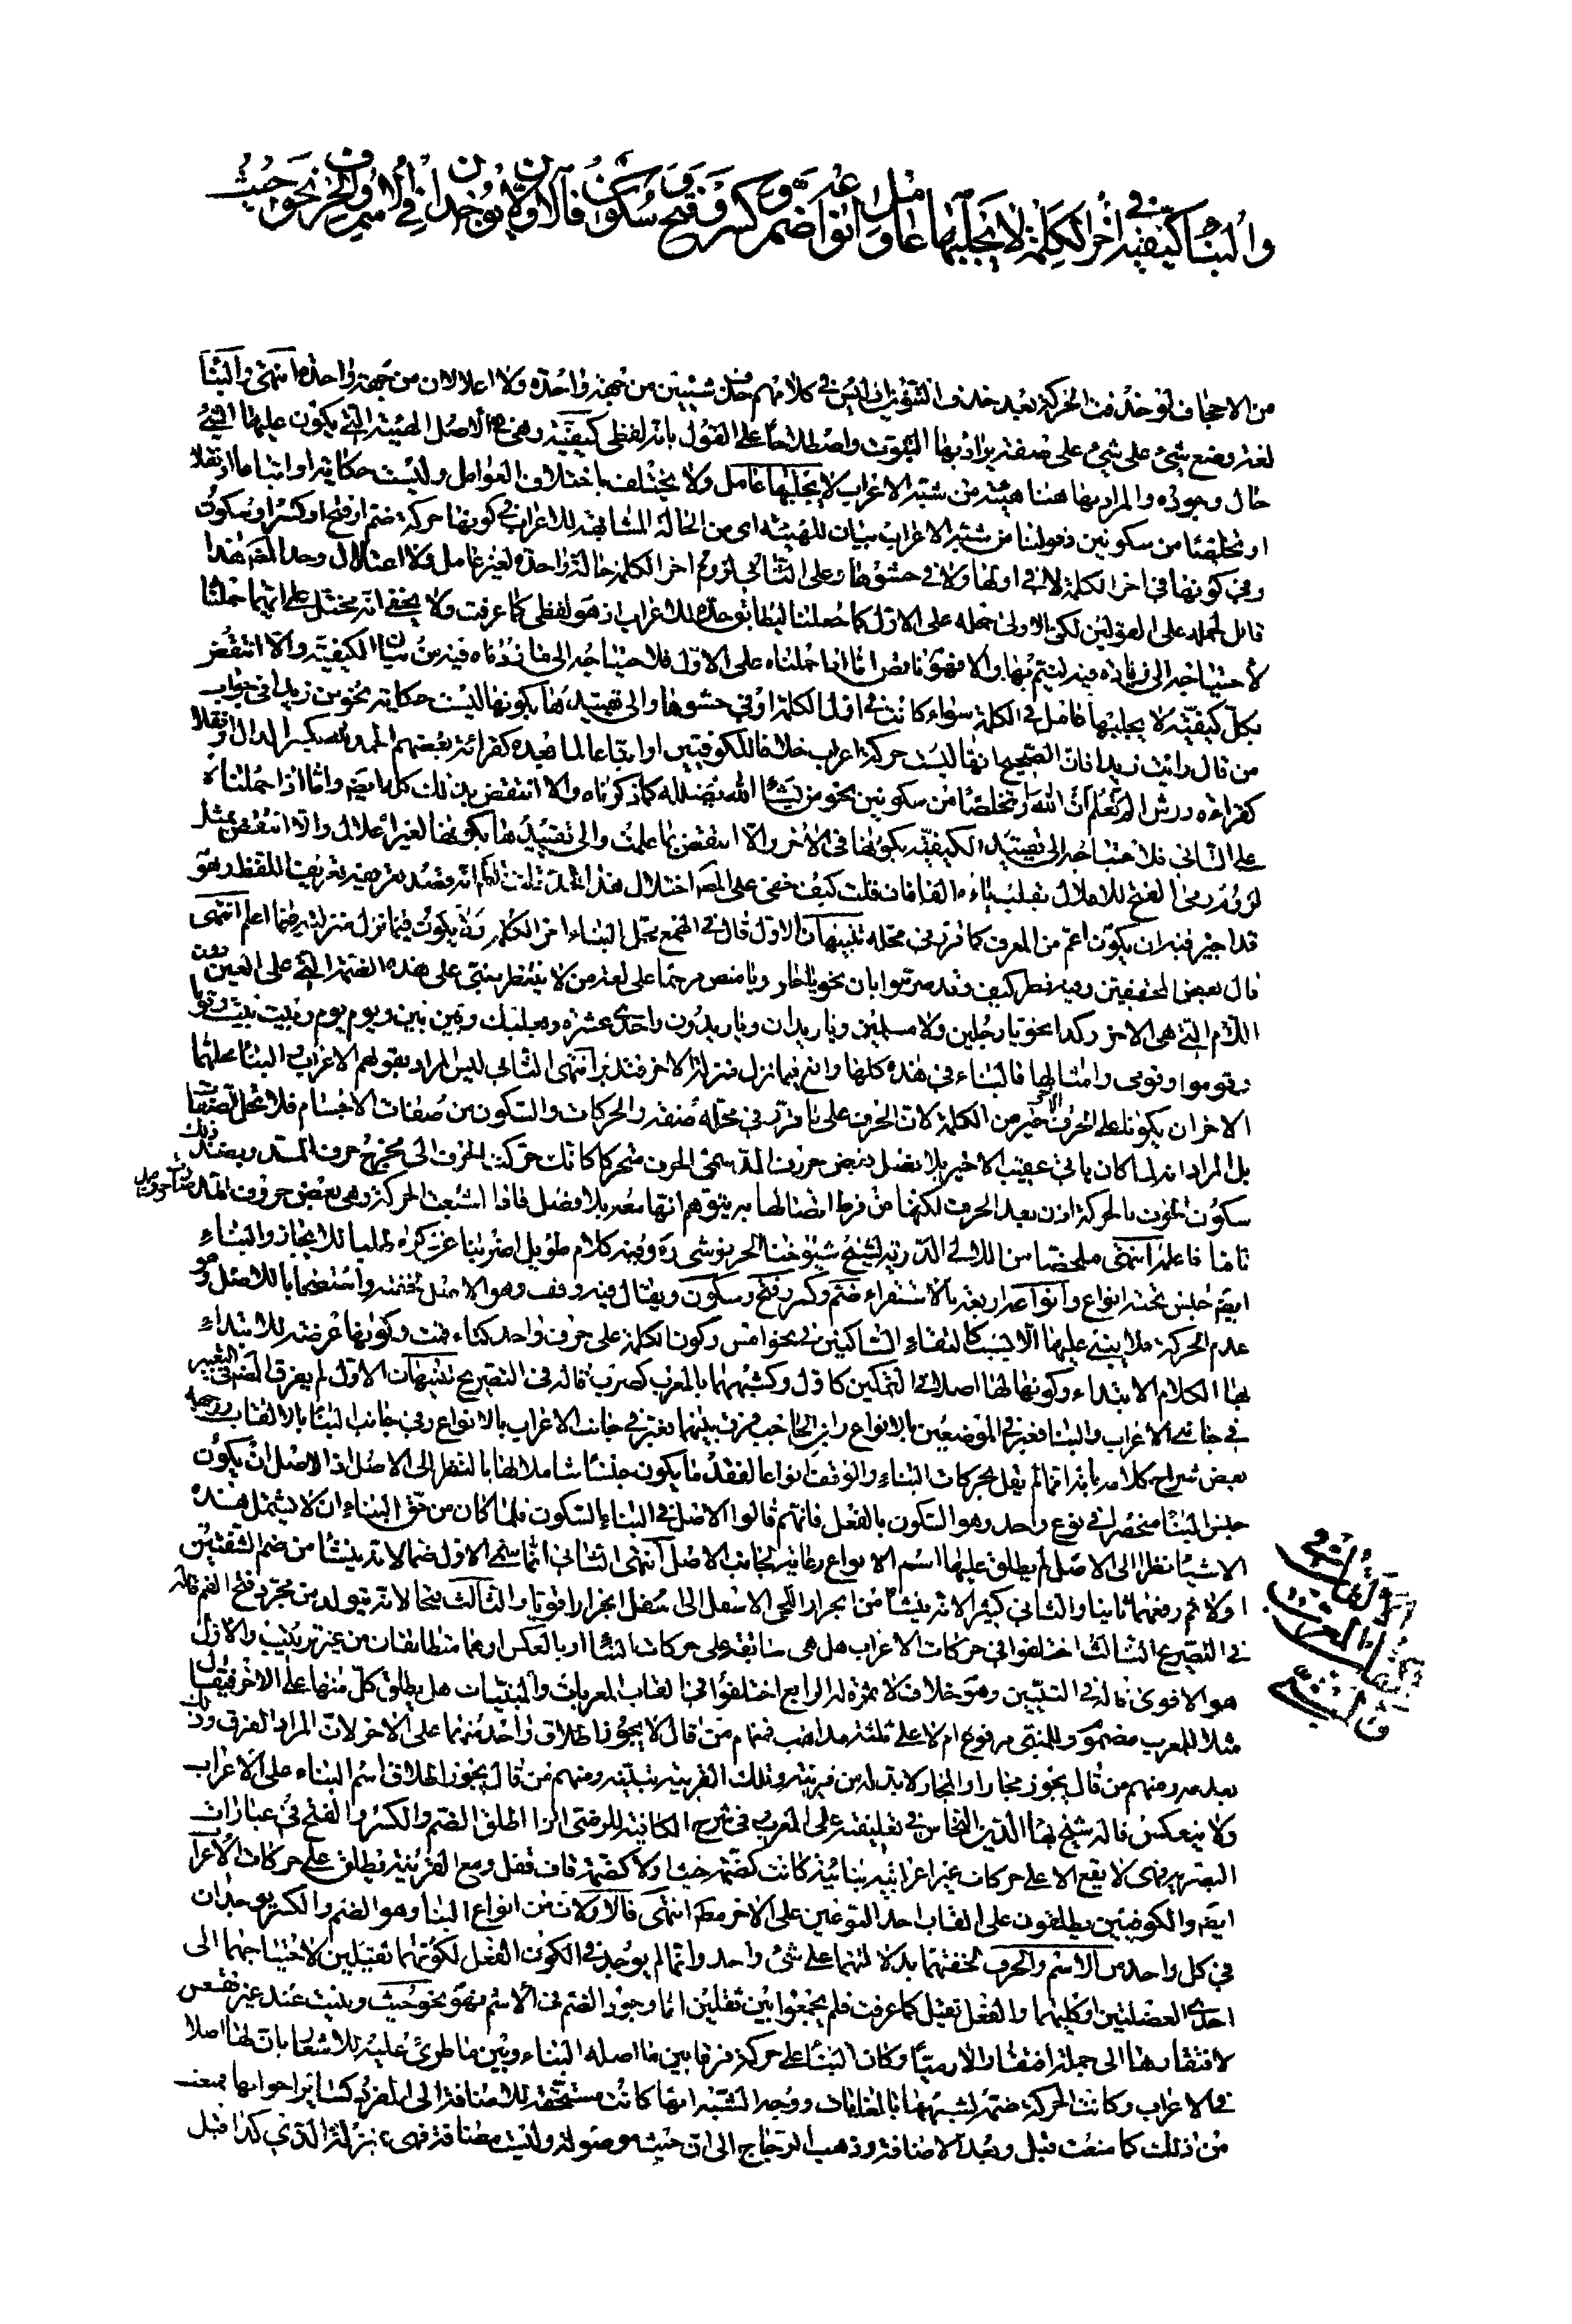 والبناء كيفية في آخر الكلمة لا يجلبها عامل وأنواعه ضم وكسر وفتح وسكون فالأولان يوجدان في الاسم والحرف نحو حيث
من الاجحاف لو حذفت الحركة بعد حذف التنوين اذ ليس في كلامهم حذف شيئين من جهة واحدة ولا اعلالان من جهة واحدة انتهى والبناء
لغة وضع شيء على شيء على صفة يراد بها الثبوت واصطلاحا على القول بانه لفظي كيفية وهي في الاصل الهيئة التي يكون عليها الشيء
حال وجوده والمراد بها هنا هيئة من شبه الاعراب لا يجلبها عامل ولا يختلف باختلاف العوامل وليست حكاية او اتباعا او نقلا
او تخلصا من سكونين وقولنا من شبه الاعراب بيان للهيئة اي من الحالة المشابهة للاعراب في كونها حركة ضم او فتح او كسر او سكون
وفي كونها في اخر الكلمة لا في اولها ولا في حشوها وعلى الثاني لزوم اخر الكلمة حالة واحدة لغير عامل ولا اعتلال وحد المصنف هذا
قابل لحمله على القولين لكن الاولى حمله على الاول كما فعلنا ليطابق حده للاعراب اذ هو لفظي كما عرفت ولا يخفى انه مختل على ايهما حملنا
لاحتياجه الى زيادة فيه ليتم بها والا فهو ناقص اما اذا حملناه على الاول فلاحتياجه الى ما زدناه فيه من بيان الكيفية والا انتقض
بكل كيفية لا يجلبها عامل في الكلمة سواء كانت في اول الكلمة او في حشوها والى تقييدها بكونها ليست حكاية نحو من زيدا في جواب
من قال رايت زيدا فان الصحيح انها ليست حركة اعراب خلافا للكوفيين او اتباعا لما بعده كقراءة بعضهم الحمد لله بكسر الدال او نقلا
كقراءة ورش الم تعلم ان الله او تخلصا من سكونين نحو من يشاء الله يضلله كما ذكرناه والا انتقض بذلك كله ايضا واما اذا حملناه
على الثاني فلاحتياجه الى تقييد الكيفية بكونها في الاخر والا انتقض بما علمت والى تقييدها بكونها لغير اعلال والا انتقض بمثل
قد اجيز فيه ان يكون اعم من المعرف كما قرر في محله تنبيهان الاول قال في الهمع محل البناء اخر الكلمة وقد يكون فيما نزل منزلته منها اعلم انتهى
قال بعض المحققين وفيه نظر كيف وقد صرحوا بان نحو يا حار ويا منص مرخما على لغة من لا ينتظر مبني على هذه الضمة التي على العين دون
اللام التي هي الاخر وكذا نحو يا رجلين ولا مسلمين ويا زيدان ويا زيدون واحدى عشرة وبعلبك وبين بين ويوم يوم وبيت بيت وقوما
وقوموا وقومي وامثالها فالبناء في هذه كلها واقع فيما نزل منزلة الاخر فتدبر انتهى الثاني ليس المراد بقولهم الاعراب والبناء محلهما
الاخر ان يكونا على الحرف الاخير من الكلمة لان الحرف على ما قرر في محله صفة والحركات والسكون من صفات الاجسام فلا تحل الصفات
بل المراد انه لما كان ياتي عقيب الاخير بلا فصل بعض حروف المد سمي الحرف متحركا كانك حركت الحرف الى مخرج حرف المد وبضد ذلك
سكون الحرف فالحركة اذن بعد الحرف لكنها من فرط اتصالها به يتوهم انها معه بلا فصل فاذا اشبعت الحركة وهي بعض حروف المد صارت حرف مد
تاما فاعلم انتهى ملخصا من اللالي الدرية لشيخ شيوخنا الحرفوشي ره وفيه كلام طويل اضربنا عن ذكره طلبا للايجاز والبناء
ايضا جنس تحته انواع وانواعه اربعة بالاستقراء ضم وكسر وفتح وسكون ويقال فيه وقف وهو الاصل لخفته واستصحابا للاصل وهو
عدم الحركة فلا يبنى عليها الا لسبب كالتقاء الساكنين في نحو امس وكون الكلمة على حرف واحد كتاء قمت وكونها عرضة للابتداء
بها الكلام الابتداء وكونها لها اصل في التمكين كاول وكشبهها بالمعرب كضرب قاله في التصريح تنبيهات الاول لم يفرق المصنف في التعبير
في جانبي الاعراب والبناء فعبر في الموضعين بالانواع وابن الحاجب فرق بينهما فعبر في جانب الاعراب بالانواع وفي جانب البناء بالالقاب ووجه
بعض شراح كلامه بانه انما لم يقل لحركات البناء والوقف انواعا لفقد ما يكون جنسا شاملا لها بالنظر الى الاصل اذ الاصل ان يكون
جنس البناء منحصرا في نوع واحد وهو السكون بالفعل فانهم قالوا الاصل في البناء السكون فلما كان من حق البناء ان لا يشتمل هذه
الاشياء نظرا الى الاصل لم يطلق عليها اسم الانواع رعاية لجانب الاصل انتهى الثاني انما سمي الاول ضما لانه ينشأ من ضم الشفتين
اولا ثم رفعهما ثانيا والثاني كسرا لانه ينشأ من انجرار اللحي الاسفل الى سفل انجرارا قويا والثالث فتحا لانه يتولد من مجرد فتح الفم قاله
في التصريح الثالث اختلفوا في حركات الاعراب هل هي سابقة على حركات البناء او بالعكس او هما متطابقان من غير ترتيب والاول
هو الاقوى قاله في التبيين وهو خلاف لا ثمرة له الرابع اختلفوا في القاب المعربات والمبنيات هل يطلق كل منها على الاخر فيقال
مثلا للمعرب مضموم وللمبني مرفوع ام لا على ثلثة مذاهب فمنهم من قال لا يجوز اطلاق واحد منهما على الاخر لان المراد الفرق وذلك
يعدمه ومنهم من قال يجوز مجازا والمجاز لا بد له من قرينة وتلك القرينة تبينه ومنهم من قال يجوز اطلاق اسم البناء على الاعراب
ولا ينعكس قاله شيخ بهاء الدين النحاس في تعليقته على المقرب وفي شرح الكافية للرضي اذا اطلق الضم والكسر والفتح في عبارات
البصريين فهي لا يقع الا على حركات غير اعرابية بنائية كانت كضمة حيث او لا كضمة قاف قفل ومع القرينة يطلق على حركات الاعراب
ايضا والكوفيين يطلقون على القاب احد النوعين على الاخر مطلقا انتهى فالاولان من انواع البناء وهو الضم والكسر يوجدان
في كل واحد من الاسم والحرف لخفتهما بدلالتهما على شيء واحد وانما لم يوجد في الكون الفعل لكونهما ثقيلين لاحتياجهما الى
احدى العضلتين او كليهما والفعل ثقيل كما عرفت فلم يجمعوا بين ثقلين اما وجود الضم في الاسم فهو نحو حيث وبنيت عند غير فقعس
لافتقارها الى جملة افتقارا لازميا وكان البناء على حركة فرقا بين ما اصله البناء وبين ما طرئ عليه للاشعار بان لها اصلا
في الاعراب وكانت الحركة ضمة لشبهها بالغايات ووجه الشبه انها كانت مستحقة للاضافة الى المفرد كسائر اخواتها فمنعت
من ذلك كما منعت قبل وبعد الاضافة وذهب الزجاج الى ان حيث موصولة وليست مضافة فهي بمنزلة الذي كذا قبل